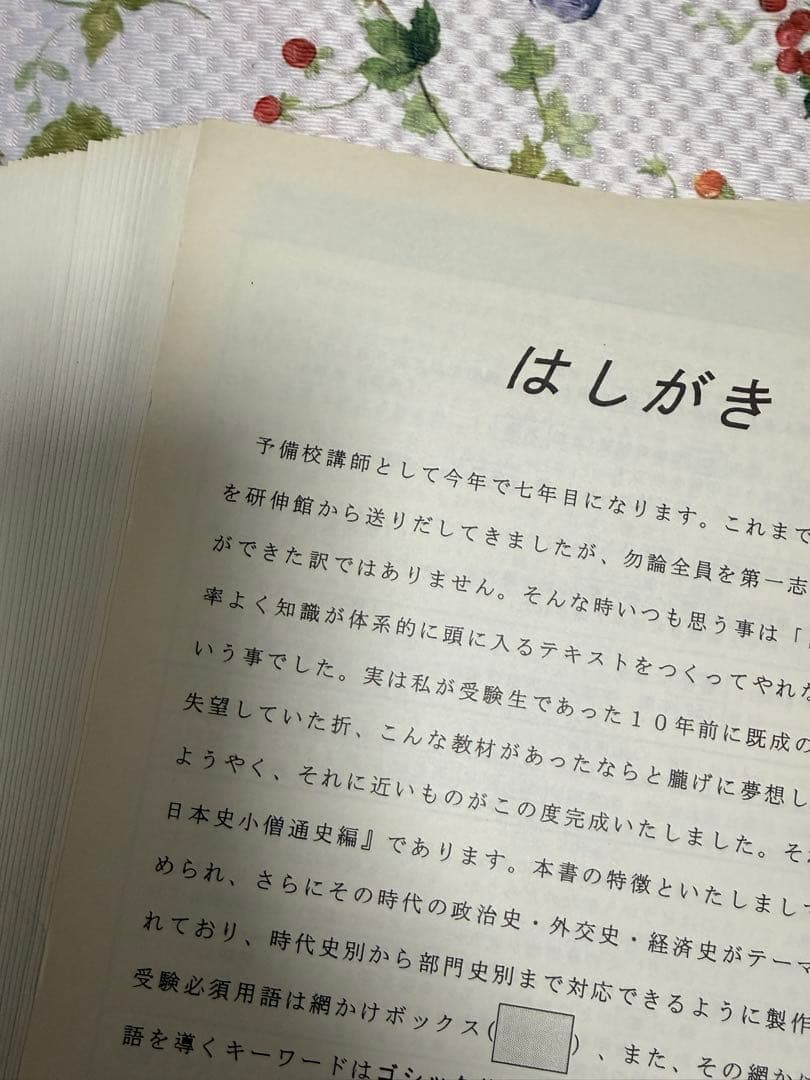 はしがき
予備校講師として今年で七年目になります。これまで
を研伸館から送りだしてきましたが、勿論全員を第一志
ができた訳ではありません。そんな時いつも思う事は「
率よく知識が体系的に頭に入るテキストをつくってやれな
いう事でした。実は私が受験生であった10年前に既成の
失望していた折、こんな教材があったならと朧げに夢想し
ようやく、それに近いものがこの度完成いたしました。それ
日本史小僧通史編』であります。本書の特徴といたしまして
められ、さらにその時代の政治史・外交史・経済史がテーマ
れており、時代史別から部門史別まで対応できるように製作
受験必須用語は網かけボックス( )、また、その網か
語を導くキーワードはゴシック